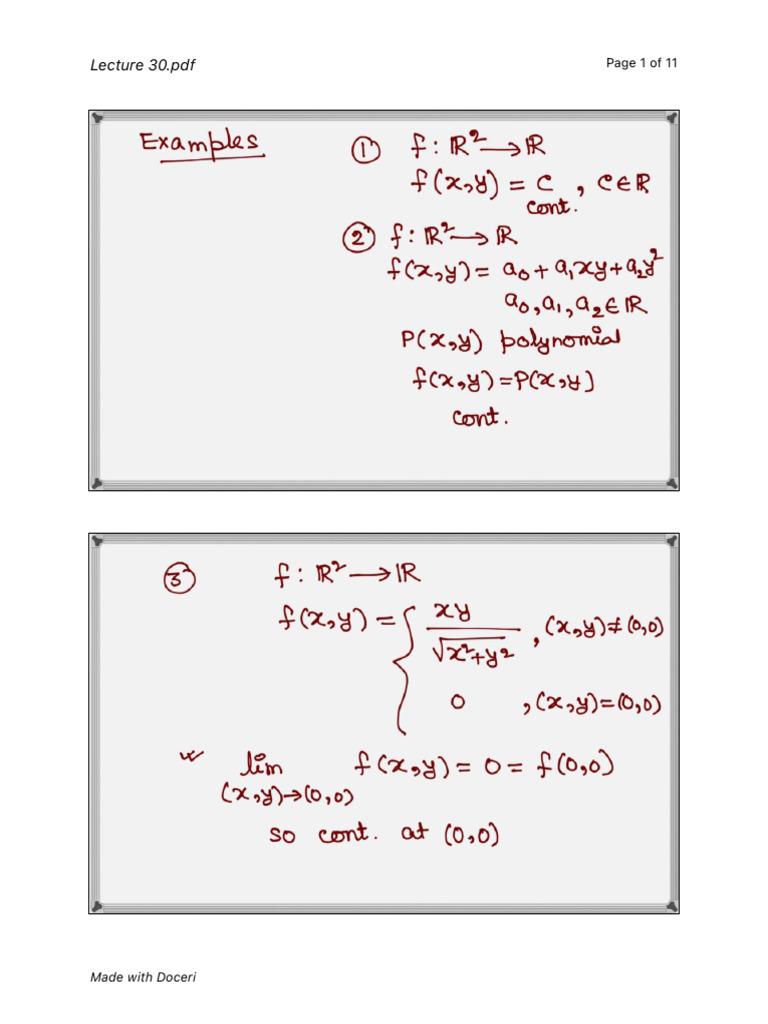 Lecture 30.pdf
Page 1 of 11
Examples
① f : ℝ² → ℝ
f(x,y) = c , c ∈ ℝ
cont.
② f : ℝ² → ℝ
f(x,y) = a₀ + a₁xy + a₂y²
a₀, a₁, a₂ ∈ ℝ
P(x,y) polynomial
f(x,y) = P(x,y)
cont.
③ f : ℝ² → ℝ
f(x,y) = { xy / √x²+y² , (x,y) ≠ (0,0)
0 , (x,y) = (0,0)
lim f(x,y) = 0 = f(0,0)
(x,y)→(0,0)
so cont. at (0,0)
Made with Doceri